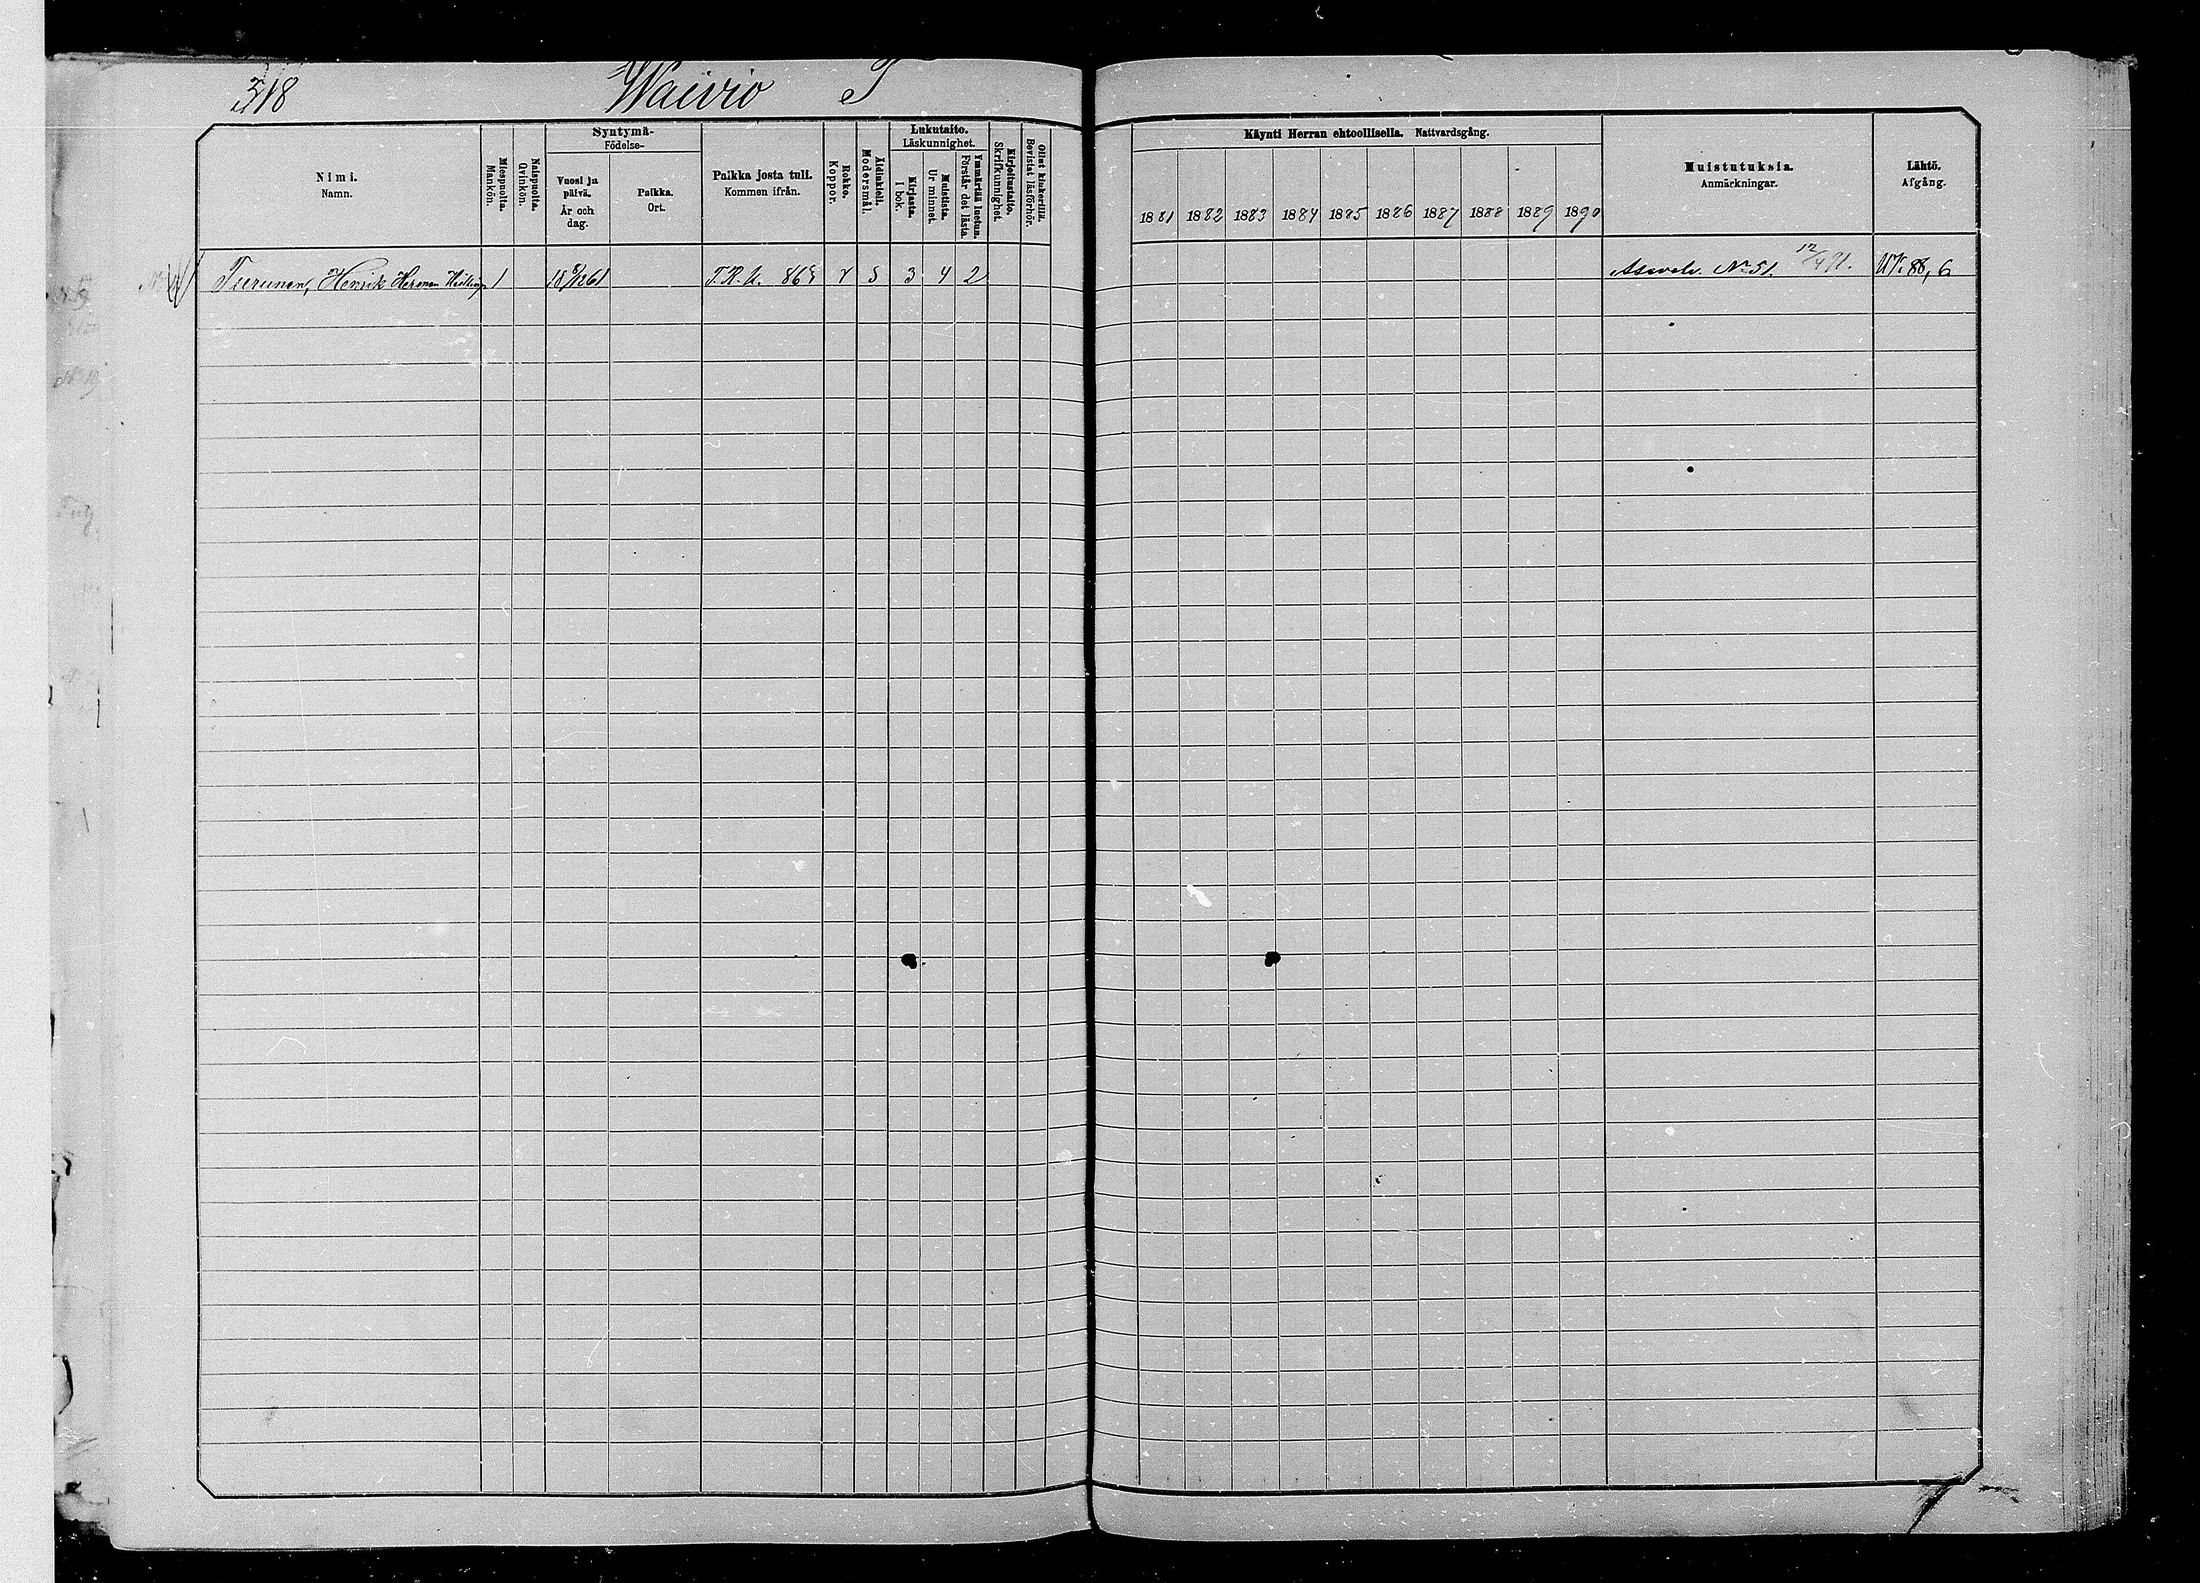 318 Waivio T
Nimi. Namn.
Miespuolta. Mankön.
Naispuolta. Qvinkön.
Syntymä- Födelse-
Vuosi ja päivä. År och dag.
Paikka. Ort.
Paikka josta tuli. Kommen ifrån.
Rokko. Koppor.
Äidinkieli. Modersmål.
Lukutaito. Läskunnighet.
Kirjasta. I bok.
Muistista. Ur minnet.
Ymmärtää luetun. Förstår det lästa.
Kirjoitustaito. Skrifkunnighet.
Ollut kinkerillä. Bevistat läsförhör.
Käynti Herran ehtoollisella. Nattvardsgång.
1881 1882 1883 1884 1885 1886 1887 1888 1889 1890
Muistutuksia. Anmärkningar.
Lähtö. Afgång.
Turunen, Henrik Herman 1 T.R.A. r S 3 4 2 No 51. 12/4 91. 88, 6